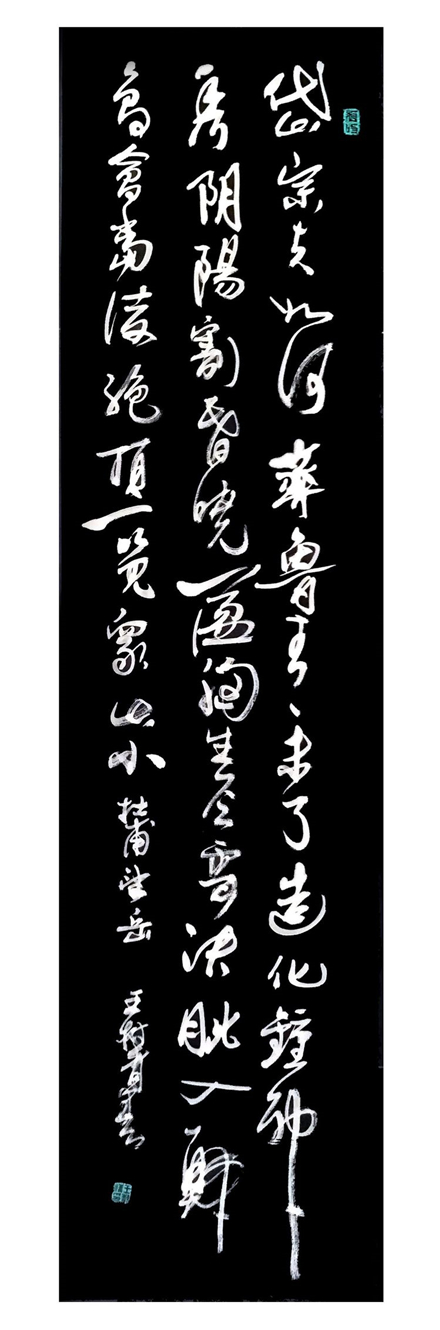 岱宗夫如何齊魯青未了造化鍾神
秀阴陽割昏曉盪胸生层雲决眦入歸
鳥會當凌絶頂一览眾山小 杜甫望岳 王树